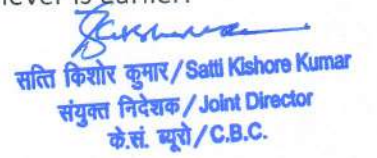 is earlier.
सत्ति किशोर कुमार/Satti Kishore Kumar
संयुक्त निदेशक/Joint Director
के.सं. ब्यूरो/C.B.C.